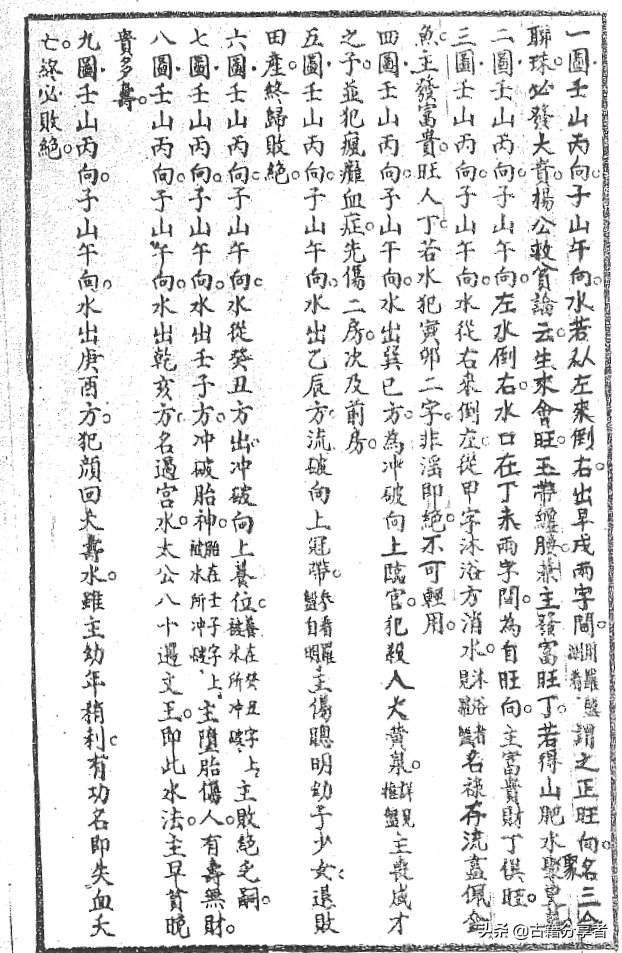 一圖壬山丙向子山午向水若从左來倒右出早戌兩字間用羅盤測看謂之正旺向名三合
聯珠必發大貴楊公救貧論云生來會旺玉帶纏腰兼主發富旺丁若得山肥水聚
二圖壬山丙向子山午向左水倒右水口在丁未兩字間為自旺向主富貴財丁俱旺
三圖壬山丙向子山午向水從右來倒左從甲字沐浴方消水沐浴者見羅盤名祿存流盡佩金
魚主發富貴旺人丁若水犯寅卯二字非滛即絕不可輕用
四圖壬山丙向子山午向水出巽巳方為冲破向上臨官犯殺人大黄泉詳見推盤主喪成才
之子並犯瘋癱血症先傷二房次及前房
五圖壬山丙向子山午向水出乙辰方流破向上冠帶參看羅盤自明主傷聰明幼子少女退敗
田產終歸敗絕
六圖壬山丙向子山午向水從癸丑方出冲破向上養位養在癸丑字上被水所冲破主敗絕乏嗣
七圖壬山丙向子山午向水出壬子方冲破胎神胎在壬子字上被水所冲破主墮胎傷人有壽無財
八圖壬山丙向子山午向水出乾亥方名過宮水太公八十遇文王即此水法主早貧晚
貴多壽
九圖壬山丙向子山午向水出庚酉方犯顔回夭壽水雖主幼年稍利有功名即失血夭
亡終必敗絕
头条 @古籍分享者